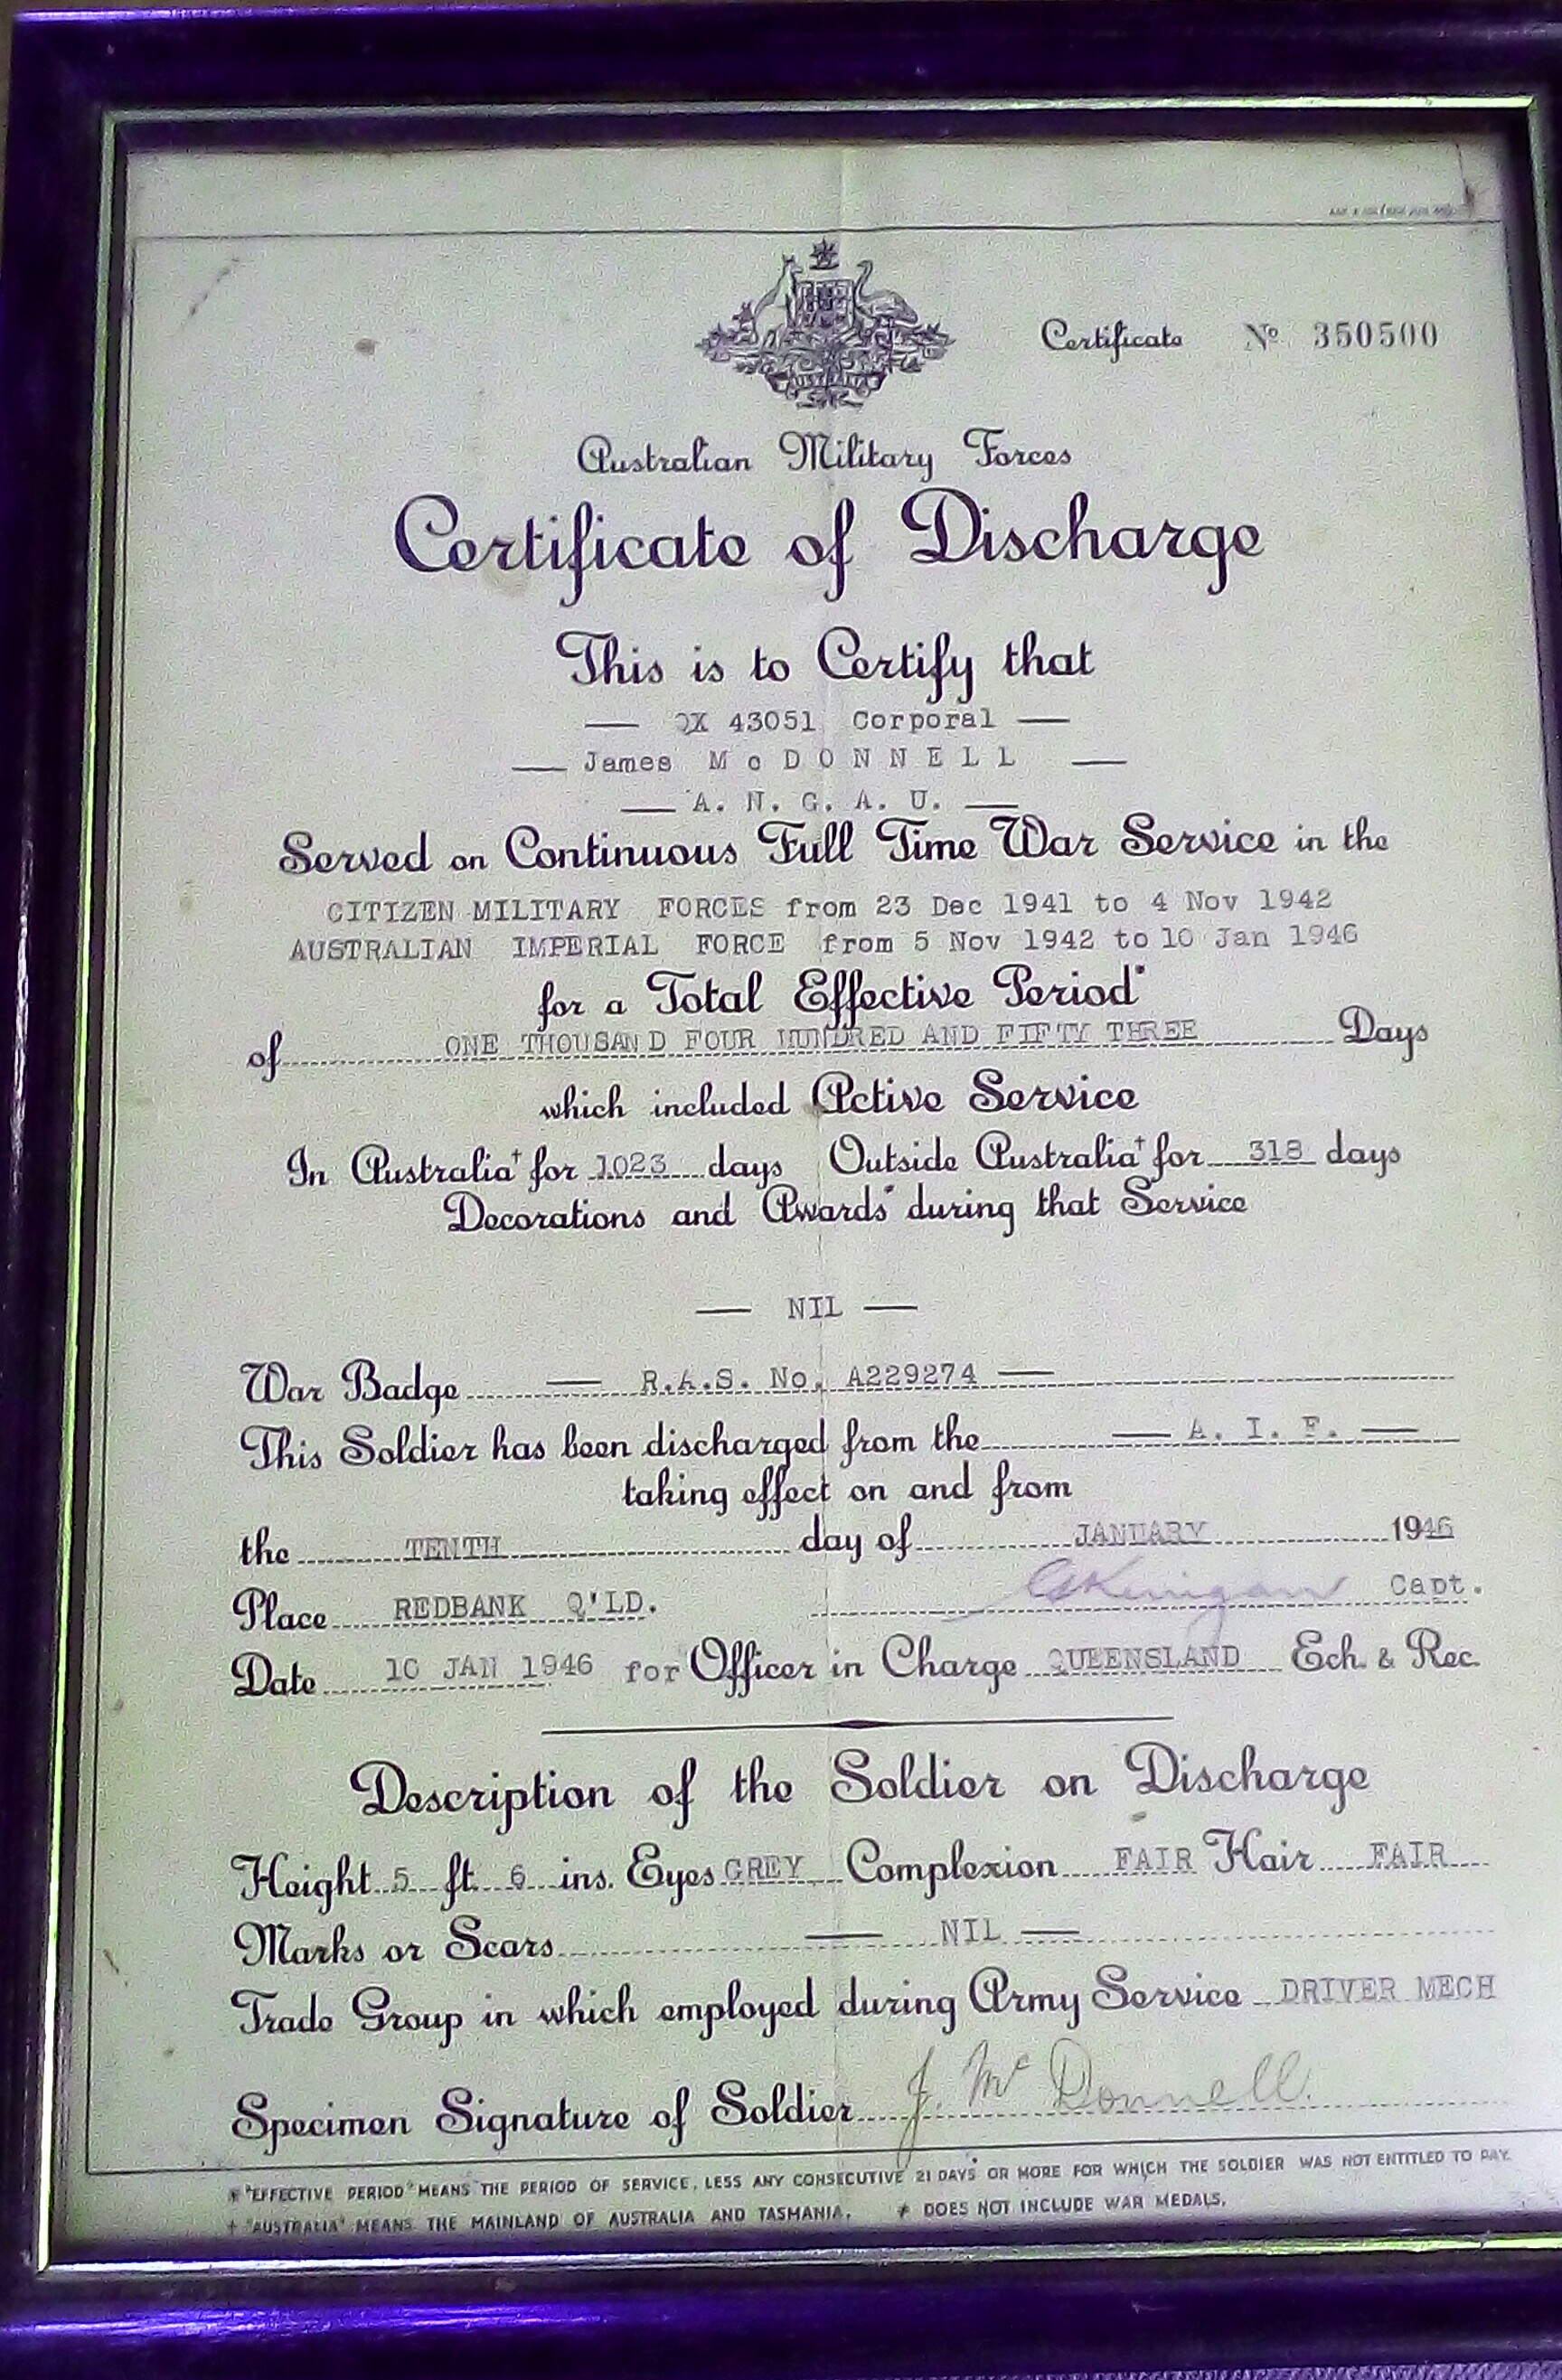 AUSTRALIA
Certificate No 350500
Australian Military Forces
Certificate of Discharge
This is to Certify that
— QX 43051 Corporal —
— James McDONNELL —
— A. N. G. A. U. —
Served on Continuous Full Time War Service in the
CITIZEN MILITARY FORCES from 23 Dec 1941 to 4 Nov 1942
AUSTRALIAN IMPERIAL FORCE from 5 Nov 1942 to 10 Jan 1946
for a Total Effective Period*
of ONE THOUSAND FOUR HUNDRED AND FIFTY THREE Days
which included Active Service
In Australia† for 1023 days Outside Australia† for 318 days
Decorations and Awards* during that Service
— NIL —
War Badge — R.A.S. No. A229274 —
This Soldier has been discharged from the — A. I. F. —
taking effect on and from
the TENTH day of JANUARY 1946
Place REDBANK Q'LD. Capt.
Date 10 JAN 1946 for Officer in Charge QUEENSLAND Ech. & Rec.
Description of the Soldier on Discharge
Height 5 ft. 6 ins. Eyes GREY Complexion FAIR Hair FAIR
Marks or Scars — NIL —
Trade Group in which employed during Army Service DRIVER MECH
Specimen Signature of Soldier J. McDonnell.
* "EFFECTIVE PERIOD" MEANS THE PERIOD OF SERVICE, LESS ANY CONSECUTIVE 21 DAYS OR MORE FOR WHICH THE SOLDIER WAS NOT ENTITLED TO PAY.
† "AUSTRALIA" MEANS THE MAINLAND OF AUSTRALIA AND TASMANIA. ≠ DOES NOT INCLUDE WAR MEDALS.